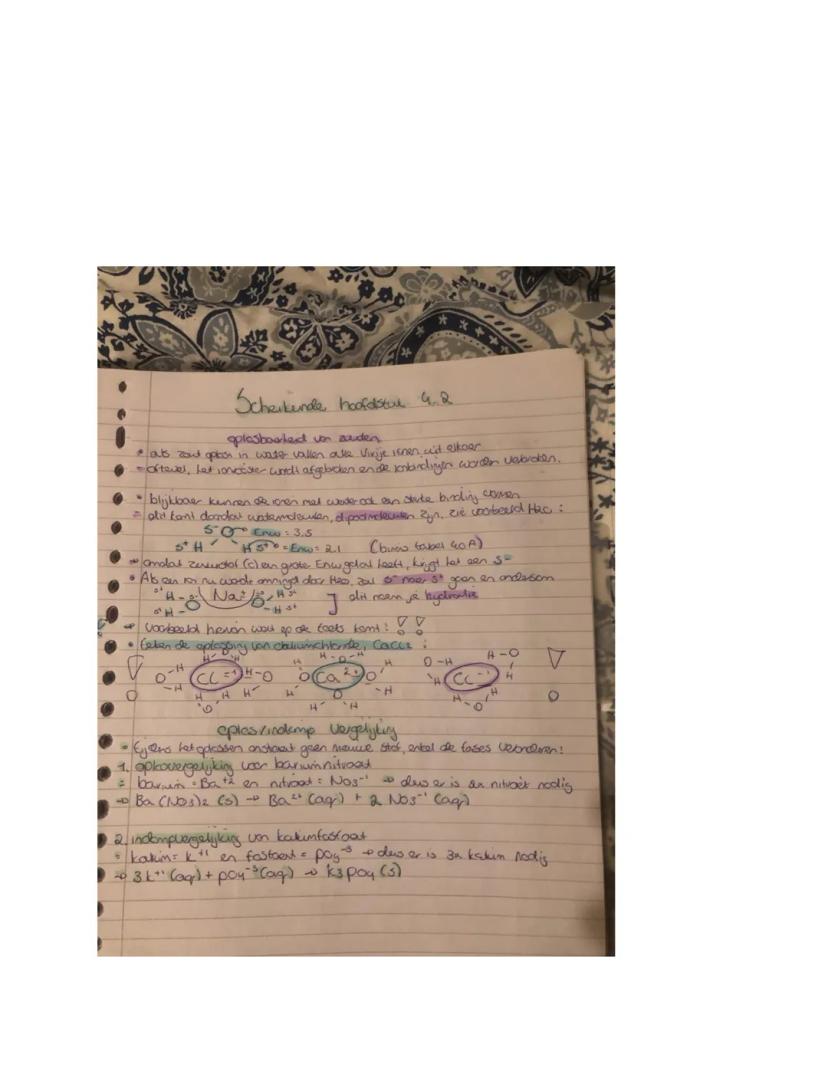 Scheikunde hoofdstuk 4.2
oplosbaarheid van zouden
• als zout oplost in water vallen alle vrije ionen uit elkaar
= oftewel, het ionrooster wordt afgebroken en de ionbindingen worden verbroken.
• blijkbaar kunnen de ionen met water ook een sterke binding vormen
= dit komt doordat watermoleculen, dipoolmoleculen zijn, zie voorbeeld H2O :
δ- O Enw = 3.5
δ+ H H δ+ = Enw = 2.1 (binas tabel 40A)
omdat zuurstof (O) een grote Enw getal heeft, krijgt het een δ-
• Als een ion nu wordt omringd door H2O, zal δ- naar δ+ gaan en andersom
δ+ H - δ- Na+ O - H δ+ dit noem je hydratie
δ+ H - O - H δ+
voorbeeld hiervan wat op de toets komt :
• teken de oplossing van calciumchloride, CaCl2 :
H-O-H H-O-H H-O
O-H Cl -1 H-O O Ca 2+ O O-H Cl -1 H
H H H H H H H H H
O H H H-O
oplos/indamp vergelijking
• tijdens het oplossen ontstaat geen nieuwe stof, enkel de fases veranderen!
1. oplosvergelijking voor bariumnitraat
= barium = Ba+2 en nitraat = NO3-1 → dus er is 2x nitraat nodig
→ Ba(NO3)2 (s) → Ba2+ (aq) + 2 NO3-1 (aq)
2. indampvergelijking van kaliumfosfaat
= kalium = K+1 en fosfaat = PO4-3 → dus er is 3x kalium nodig
→ 3K+1 (aq) + PO4-3 (aq) → K3PO4 (s)